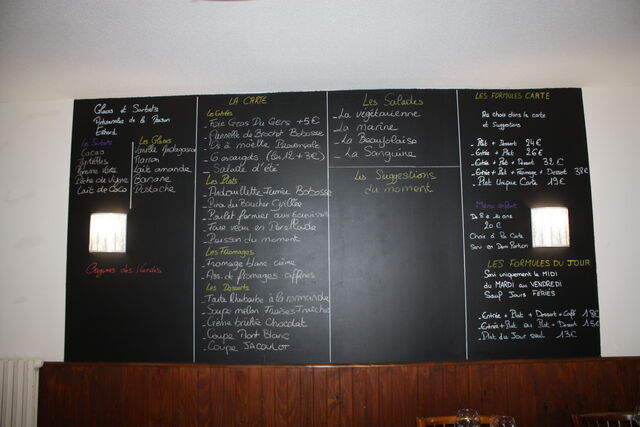 Glaces et Sorbets
Artisanales de la Maison
Les Sorbets
Cacao
Myrtilles
Pomme Verte
Pêche de Vigne
Lait de Coco
Les Glaces
Vanille Madagascar
Marron
Lait amande
Banane
Pistache
Origines des Viandes
LA CARTE
Les Entrées
- Foie Gras Du Gers +5€
- Quenelle de Brochet Bobosse
- Os à moelle
- 6 escargots (les 12 + 3€)
- Salade d'été
Les Plats
- Andouillette Fumée Bobosse
- Pièce du Boucher Grillée
- Poulet fermier aux
- Foie veau en Persillade
- Poisson du moment
Les Fromages
- Fromage blanc crème
- Ass. de fromages affinés
Les Desserts
- Tarte Rhubarbe à la
- Soupe melon Fraises Fraîches
- Crème brulée Chocolat
- Coupe Mont Blanc
- Coupe JACOULOT
Les Salades
- La végétarienne
- La marine
- La Beaujolaise
- La Sanguine
Les Suggestions
du moment
LES FORMULES CARTE
Au choix dans la carte
et Suggestions
- Plat + Dessert 24€
- Entrée + Plat 26€
- Entrée + Plat + Dessert 32€
- Entrée + Plat + Fromage + Dessert 38€
- Plat Unique Carte 19€
Menu enfant
De 8 à 10 ans
20€
Choix à la Carte
Servi en Demi Portion
LES FORMULES DU JOUR
Servi uniquement le MIDI
du MARDI au VENDREDI
Sauf Jours FÉRIÉS
- Entrée + Plat + Dessert + Café 18€
- Entrée + Plat ou Plat + Dessert 15€
- Plat du Jour seul 13€